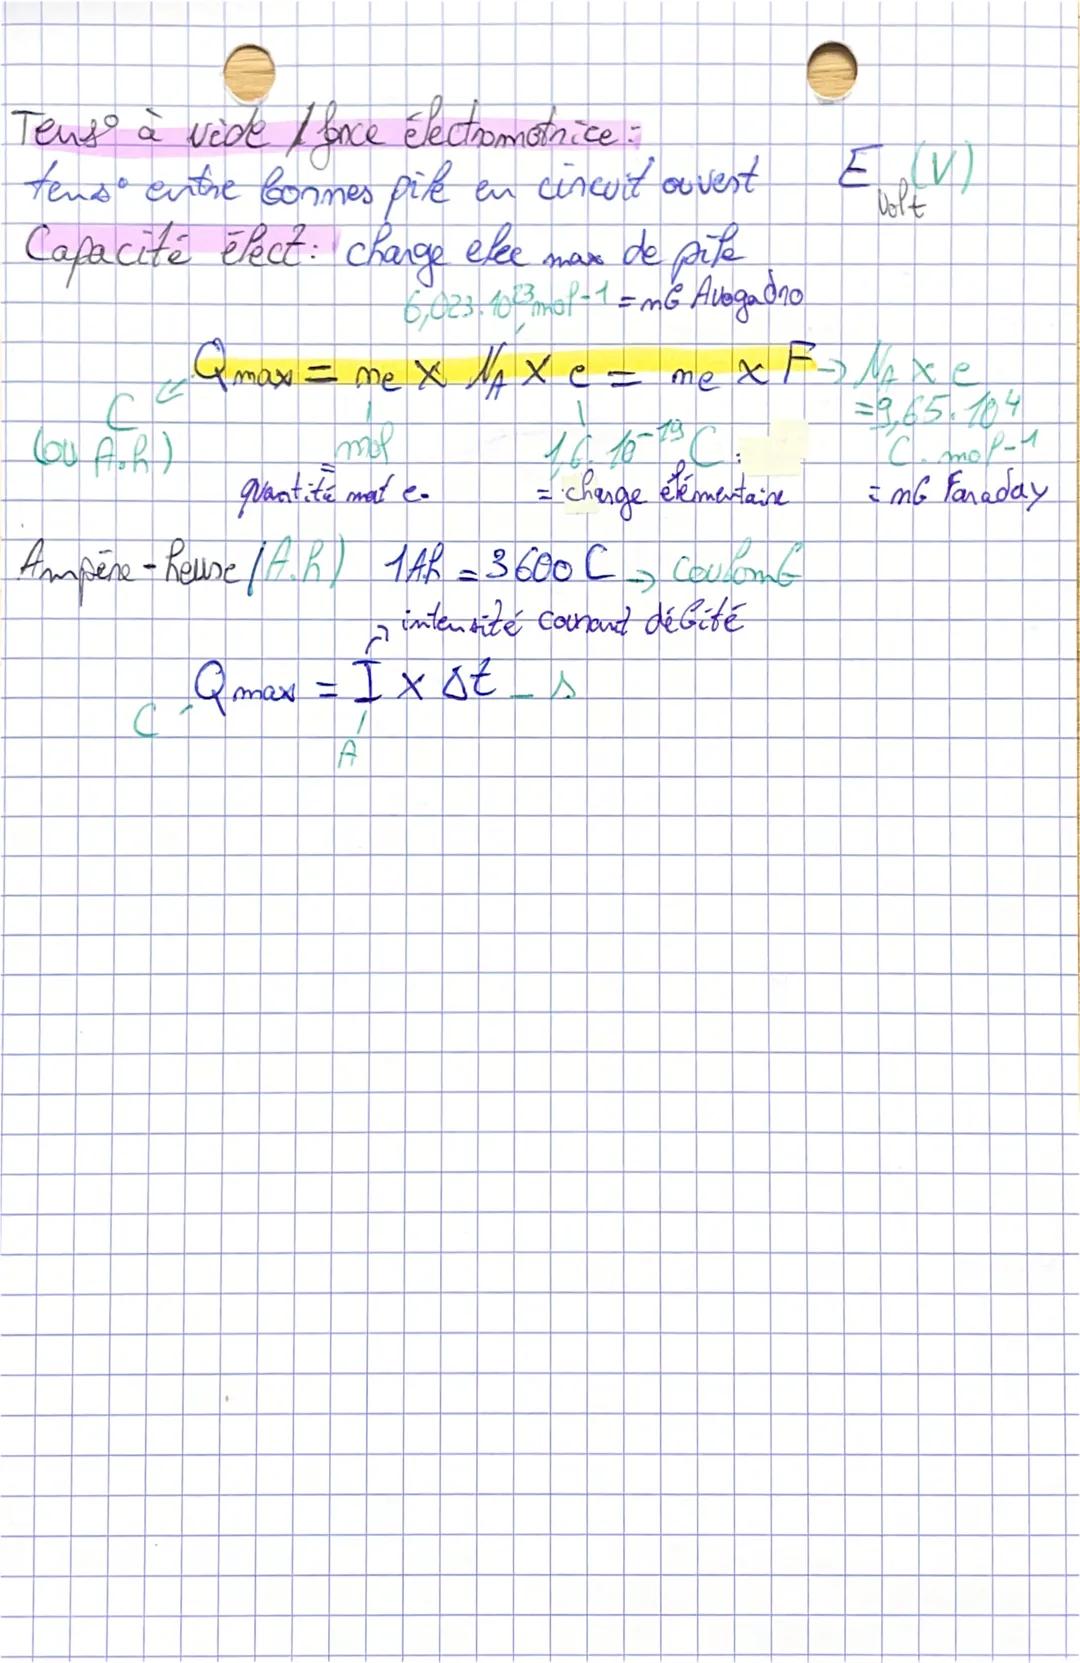 Tens° à vide / force électromotrice :
tens° entre bornes pile en circuit ouvert E (V)
Volt
Capacité élect : charge elec max de pile
6,023.10²³ mol-1 = nb Avogadro
Qmax = ne x NA x e = ne x F → NA x e
C = 9,65.10⁴
(ou A.h) mol 1,6.10⁻¹⁹ C : C.mol-1
= quantité mat e- = charge élémentaire = nb Faraday
Ampère-heure (A.h) 1Ah = 3600 C → coulomb
→ intensité courant débité
Qmax = I x Δt - s
C
A